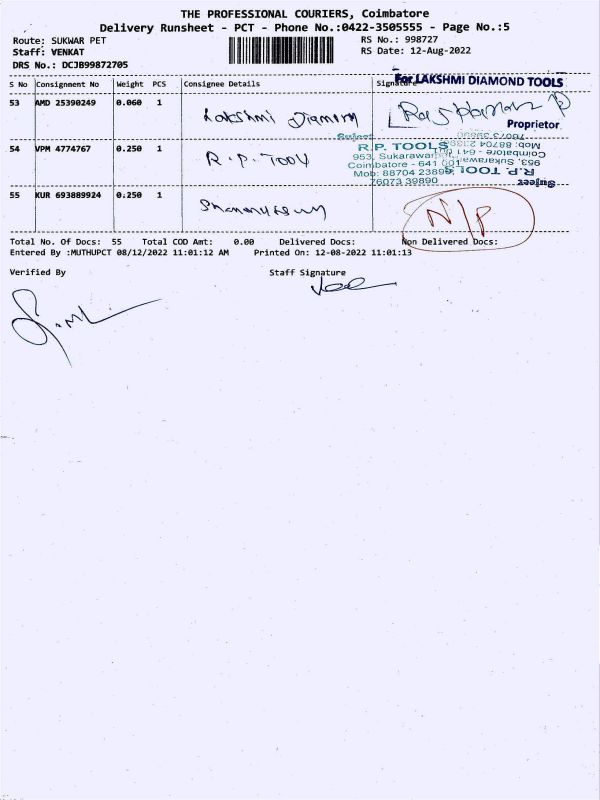 THE PROFESSIONAL COURIERS, Coimbatore
Delivery Runsheet - PCT - Phone No.:0422-3505555 - Page No.:5
Route: SUKWAR PET
RS No.: 998727
Staff: VENKAT
RS Date: 12-Aug-2022
DRS No.: DCJB99872705
S No Consignment No Weight PCS Consignee Details Signature
For LAKSHMI DIAMOND TOOLS
53 AMD 25390249 0.060 1 Lakshmi Diamond
Proprietor
54 VPM 4774767 0.250 1 R.P. Tool
R.P. TOOLS
953, Sukarawarpet
Coimbatore - 641 001
Mob: 88704 23899,
76073 39890
Sujeet
R.P. TOOLS
953, Sukarawarpet
Coimbatore - 641 001
Mob: 88704 23899
76073 39890
Sujeet
55 KUR 693889924 0.250 1
N/P
Total No. Of Docs: 55 Total COD Amt: 0.00 Delivered Docs: Non Delivered Docs:
Entered By :MUTHUPCT 08/12/2022 11:01:12 AM Printed On: 12-08-2022 11:01:13
Verified By Staff Signature